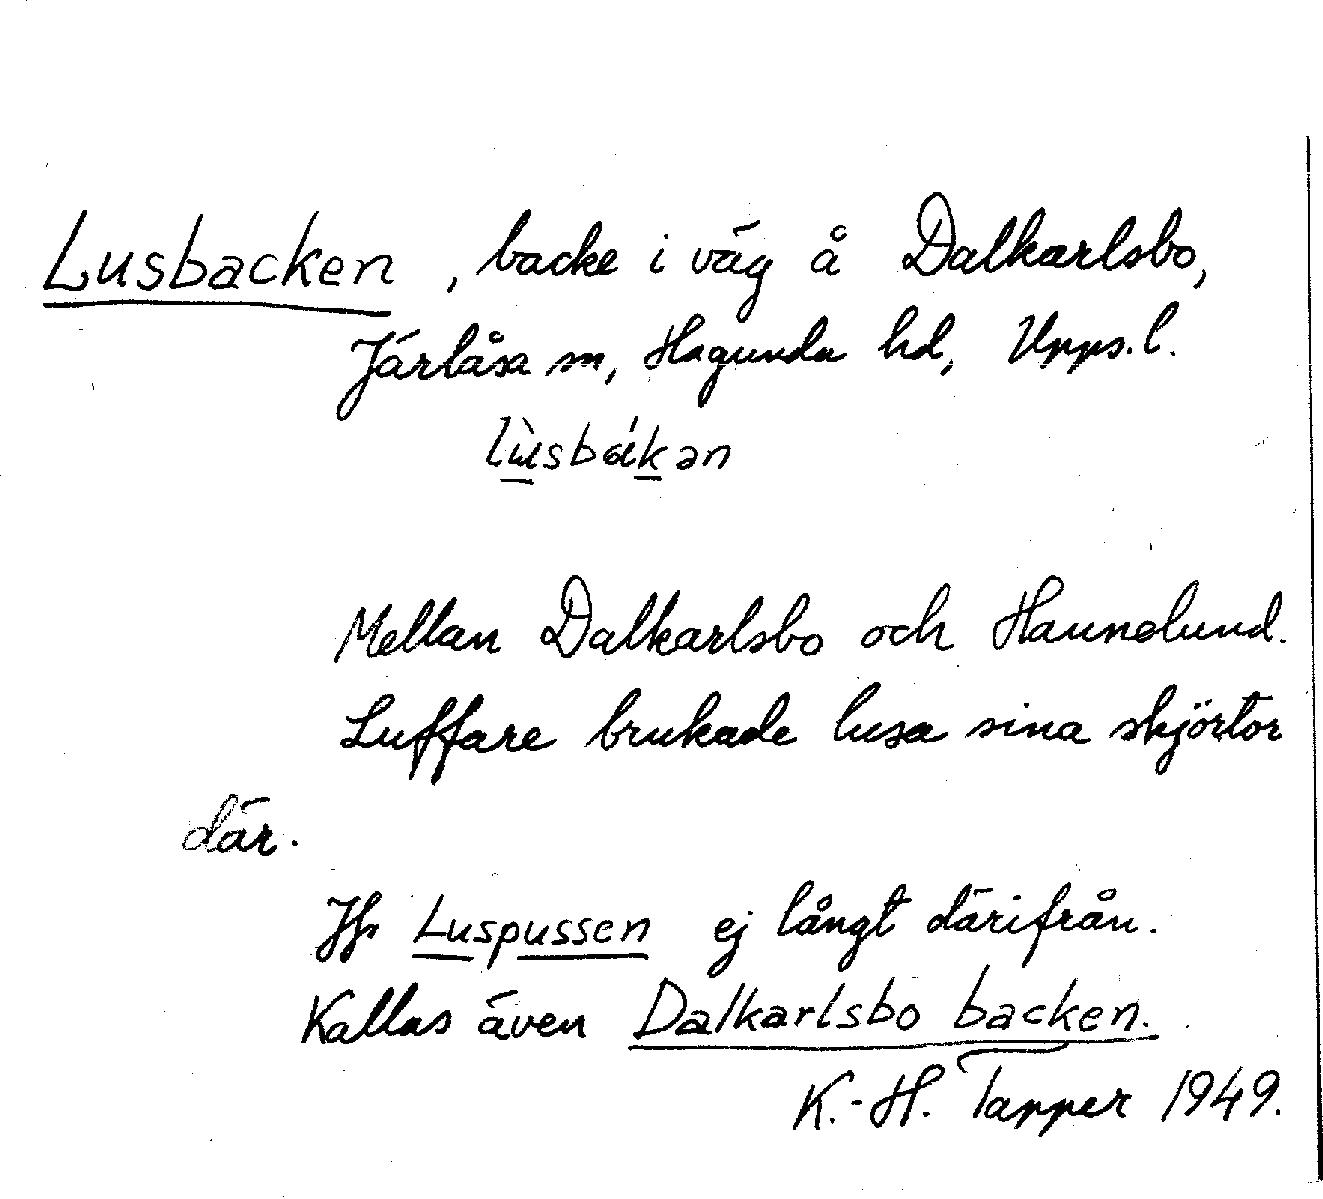 Lusbacken, backe i väg å Dalkarlsbo,
Järlåsa sn, Hagunda hd, Upps.l.
Mellan Dalkarlsbo och Hannelund.
Luffare brukade lusa sina skjörtor
där.
Jfr Luspussen ej långt därifrån.
Kallas även Dalkarlsbo backen.
K.-H. Tapper 1949.